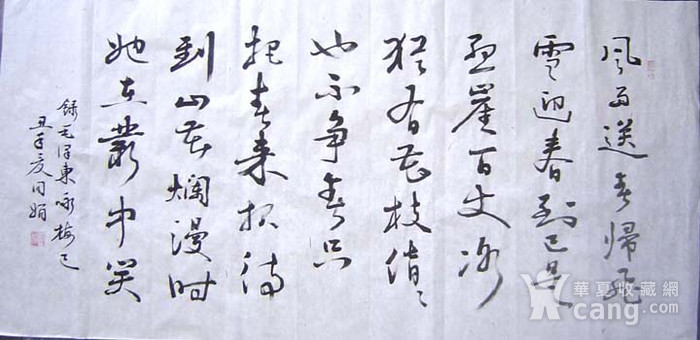 風雨送春歸飛
雪迎春到已是
悬崖百丈冰
犹有花枝俏々
也不争春只
把春来报待
到山花爛漫时
她在叢中笑
錄毛泽東咏梅己
丑年夏 娟
華夏收藏網
cang.com